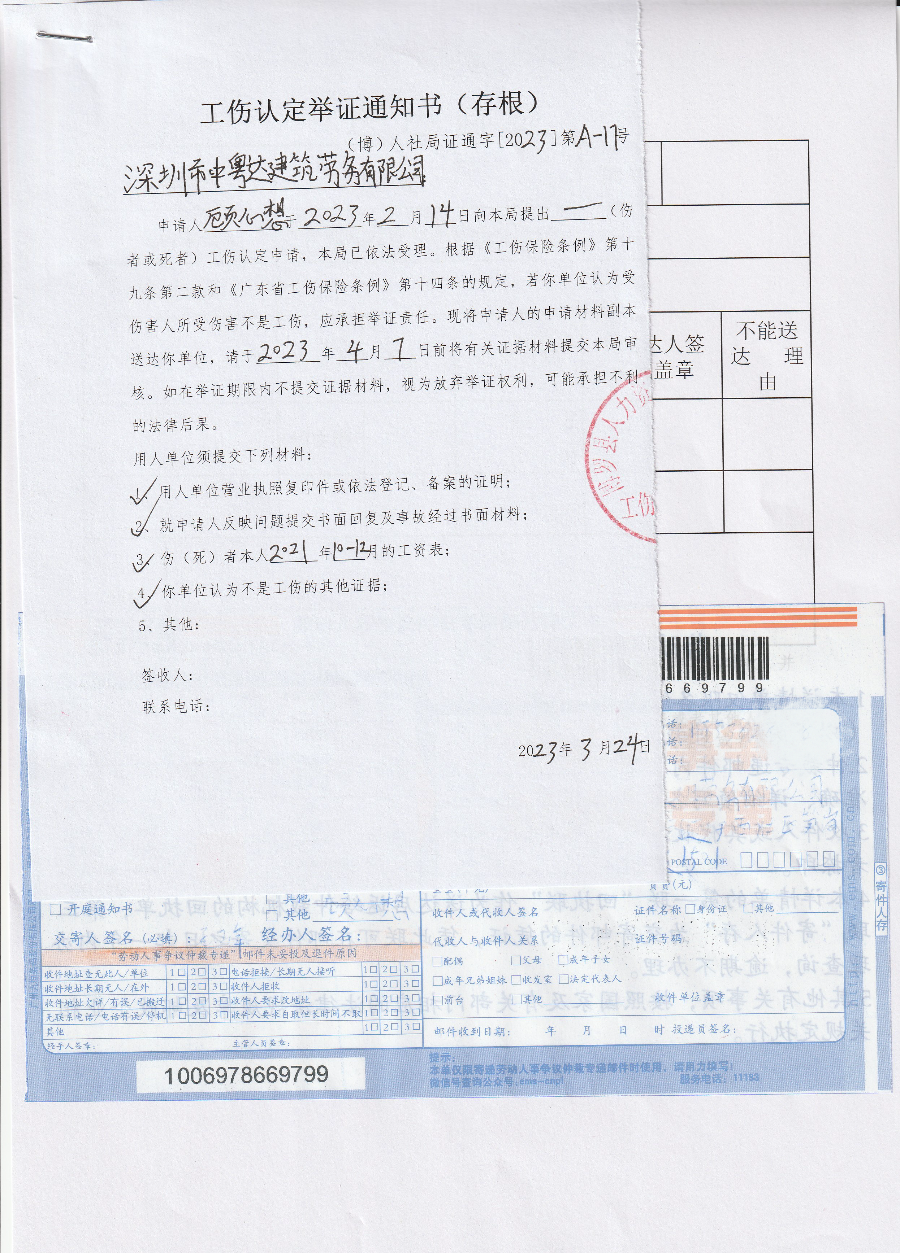 工伤认定举证通知书（存根）
（博）人社局证通字[2023]第A-17号
深圳市中粤达建筑劳务有限公司
申请人顾心想于2023年2月14日向本局提出一（伤
者或死者）工伤认定申请，本局已依法受理。根据《工伤保险条例》第十
九条第二款和《广东省工伤保险条例》第十四条的规定，若你单位认为受
伤害人所受伤害不是工伤，应承担举证责任。现将申请人的申请材料副本
送达你单位，请于2023年4月7日前将有关证据材料提交本局审
核。如在举证期限内不提交证据材料，视为放弃举证权利，可能承担不利
的法律后果。
用人单位须提交下列材料：
1、用人单位营业执照复印件或依法登记、备案的证明；
2、就申请人反映问题提交书面回复及事故经过书面材料；
3、伤（死）者本人2021年10-12月的工资表；
4、你单位认为不是工伤的其他证据；
5、其他：
签收人：
联系电话：
2023年3月24日
县人力资
工伤
达人签
盖章
不能送
达 理
由
669799
POSTAL CODE
③寄件人存
□开庭通知书
□其他
□其他
交寄人签名（必填）：
经办人签名：
"劳动人事争议仲裁专递"邮件未妥投及退件原因
收件地址查无此人/单位 1□2□3□ 电话拒接/长期无人接听 1□2□3□
收件地址长期无人/在外 1□2□3□ 收件人拒收 1□2□3□
收件地址欠详/有误/已搬迁 1□2□3□ 收件人要求改地址 1□2□3□
无联系电话/电话有误/停机 1□2□3□ 收件人要求自取但长时间不取 1□2□3□
其他 1□2□3□
经手人签章：
主管人员签章：
收件人或代收人签名
证件名称□身份证 □其他
代收人与收件人关系
证件号码
□配偶 □父母 □成年子女
□成年兄弟姐妹 □收发室 □法定代表人
□前台 □其他
收件单位盖章
邮件收到日期： 年 月 日 时 投递员签名：
1006978669799
提示：
本单仅限寄递劳动人事争议仲裁专递邮件时使用，请用力填写！
微信号查询公众号：ems-cnpl
服务电话：11183